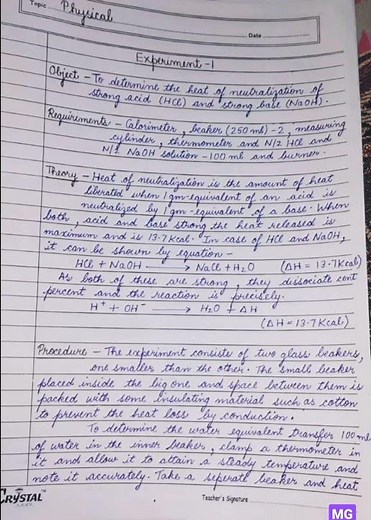 Topic Physical
Date
Experiment - 1
Object - To determine the heat of neutralization of
strong acid (HCl) and strong base (NaOH).
Requirements - Calorimeter, beaker (250 ml) - 2, measuring
cylinder, thermometer and N/2 HCl and
N/2 NaOH solution - 100 ml and burner.
Theory - Heat of neutralization is the amount of heat
liberated when 1 gm-equivalent of an acid is
neutralized by 1 gm-equivalent of a base. When
both, acid and base strong the heat released is
maximum and is 13.7 Kcal. In case of HCl and NaOH,
it can be shown by equation -
HCl + NaOH → NaCl + H₂O (ΔH = 13.7 Kcal)
As both of these are strong, they dissociate cent
percent and the reaction is precisely.
H⁺ + OH⁻ → H₂O + ΔH
(ΔH = 13.7 Kcal)
Procedure - The experiment consists of two glass beakers,
one smaller than the other. The small beaker
placed inside the big one and space between them is
packed with some insulating material such as cotton
to prevent the heat loss by conduction.
To determine the water equivalent transfer 100 ml
of water in the inner beaker, clamp a thermometer in
it and allow it to attain a steady temperature and
note it accurately. Take a seperate beaker and heat
CRYSTAL
Teacher's Signature
MG